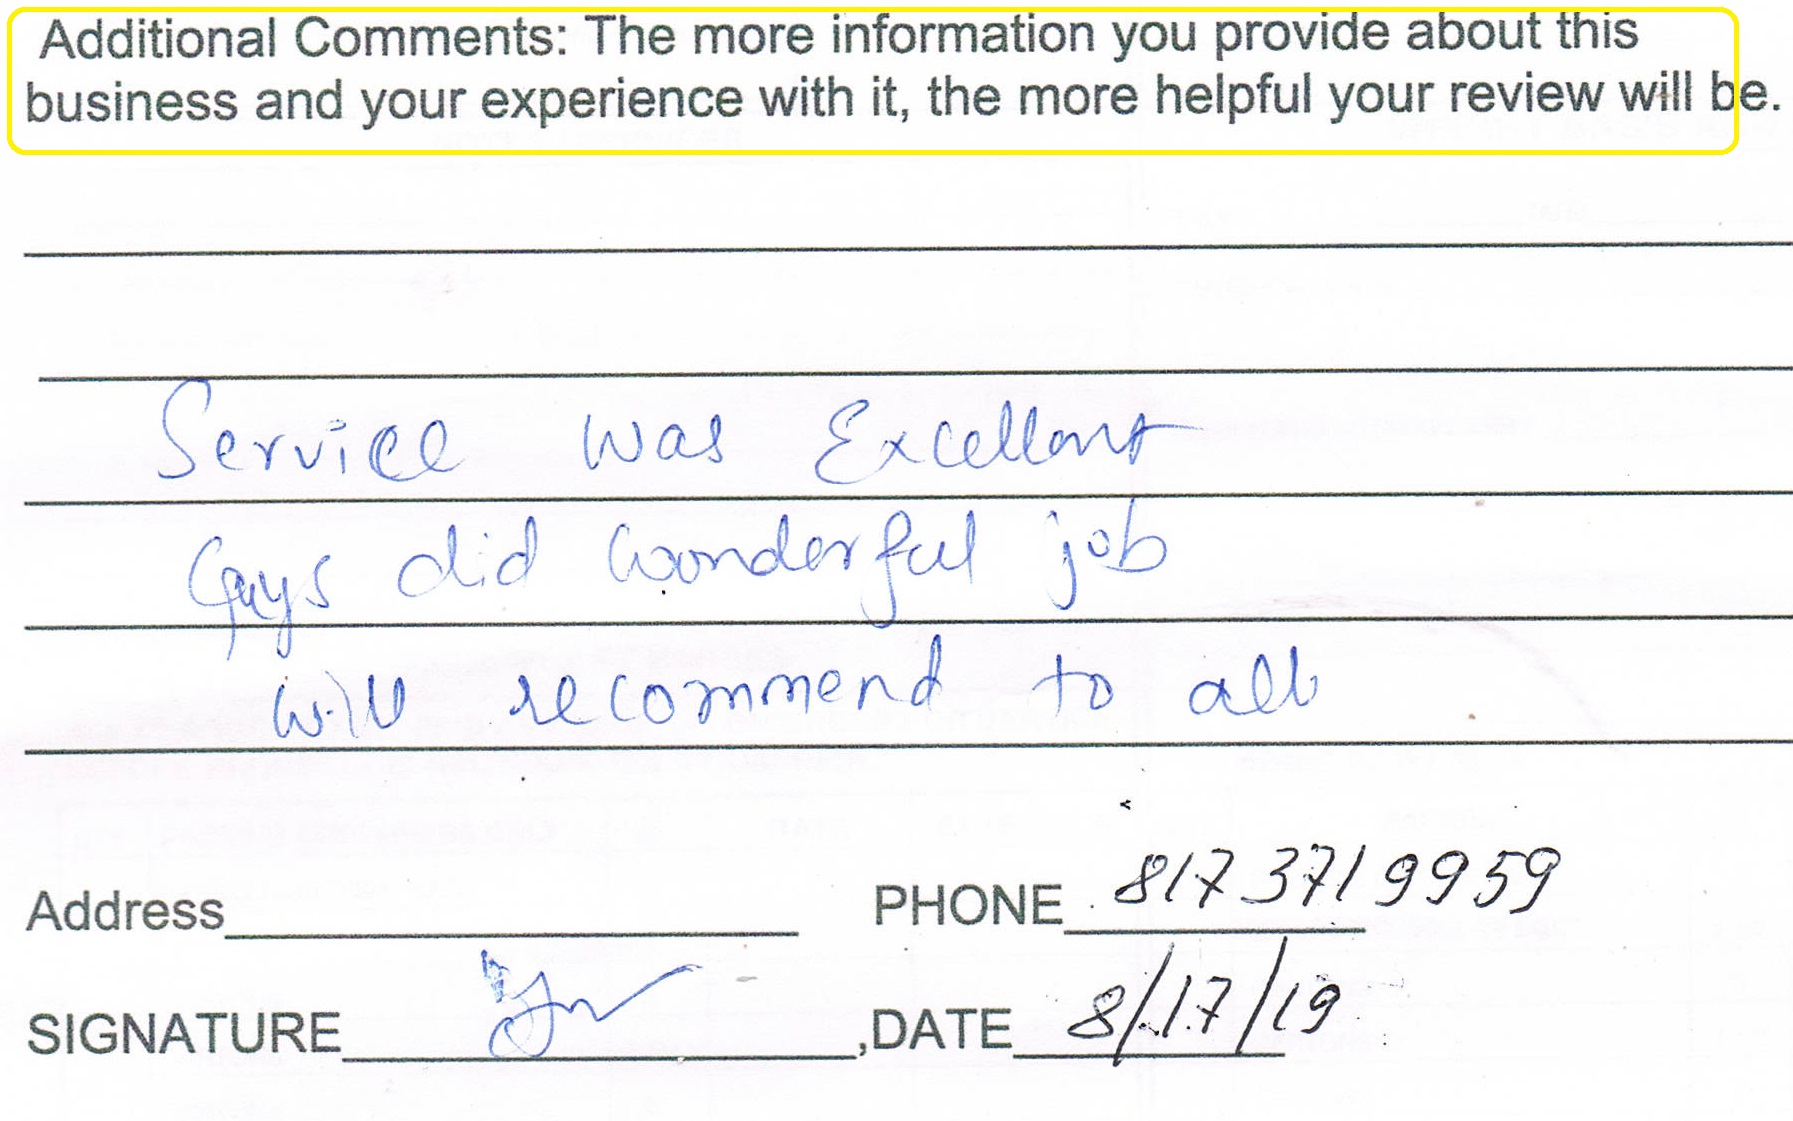 Additional Comments: The more information you provide about this
business and your experience with it, the more helpful your review will be.
Service was Excellent
Guys did wonderful job
will recommend to all
Address PHONE 817 371 9959
SIGNATURE ,DATE 8/17/19